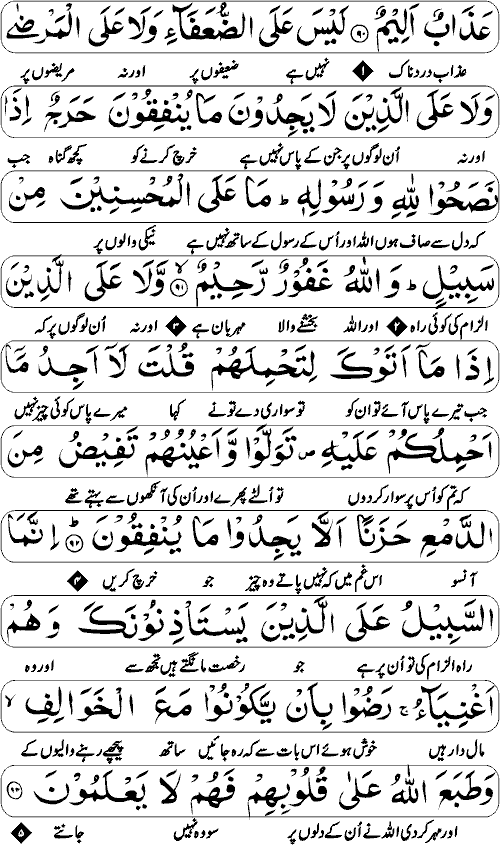 عَذَابٌ اَلِيْمٌ ۝۹۰ لَيْسَ عَلَى الضُّعَفَآءِ وَلَا عَلَى الْمَرْضٰى
عذاب دردناک ۱ نہیں ہے ضعیفوں پر اور نہ مریضوں پر
وَلَا عَلَى الَّذِيْنَ لَا يَجِدُوْنَ مَا يُنْفِقُوْنَ حَرَجٌ اِذَا
اور نہ اُن لوگوں پر جن کے پاس نہیں ہے خرچ کرنے کو کچھ گناہ جب
نَصَحُوْا لِلّٰهِ وَرَسُوْلِهٖ ؕ مَا عَلَى الْمُحْسِنِيْنَ مِنْ
کہ دل سے صاف ہوں اللہ اور اُس کے رسول کے ساتھ نہیں ہے نیکی والوں پر
سَبِيْلٍ ؕ وَاللّٰهُ غَفُوْرٌ رَّحِيْمٌ ۝۹۱ۙ وَّلَا عَلَى الَّذِيْنَ
الزام کی کوئی راہ ۲ اور اللہ بخشنے والا مہربان ہے ۳ اور نہ اُن لوگوں پر کہ
اِذَا مَآ اَتَوْكَ لِتَحْمِلَهُمْ قُلْتَ لَآ اَجِدُ مَآ
جب تیرے پاس آئے تو ان کو تو سواری دے تو نے کہا میرے پاس کوئی چیز نہیں
اَحْمِلُكُمْ عَلَيْهِ ۪ تَوَلَّوْا وَّاَعْيُنُهُمْ تَفِيْضُ مِنَ
کہ تم کو اُس پر سوار کردوں تو اُلٹے پھرے اور اُن کی آنکھوں سے بہتے تھے
الدَّمْعِ حَزَنًا اَلَّا يَجِدُوْا مَا يُنْفِقُوْنَ ۝۹۲ؕ اِنَّمَا
آنسو اس غم میں کہ نہیں پاتے وہ چیز جو خرچ کریں ۴
السَّبِيْلُ عَلَى الَّذِيْنَ يَسْتَاْذِنُوْنَكَ وَهُمْ
راہ الزام کی تو اُن پر ہے جو رخصت مانگتے ہیں تجھ سے اور وہ
اَغْنِيَآءُ ۚ رَضُوْا بِاَنْ يَّكُوْنُوْا مَعَ الْخَوَالِفِ ۙ
مال دار ہیں خوش ہوئے اس بات سے کہ رہ جائیں ساتھ پیچھے رہنے والیوں کے
وَطَبَعَ اللّٰهُ عَلٰى قُلُوْبِهِمْ فَهُمْ لَا يَعْلَمُوْنَ ۝۹۳
اور مہر کردی اللہ نے اُن کے دلوں پر سو وہ نہیں جانتے ۵